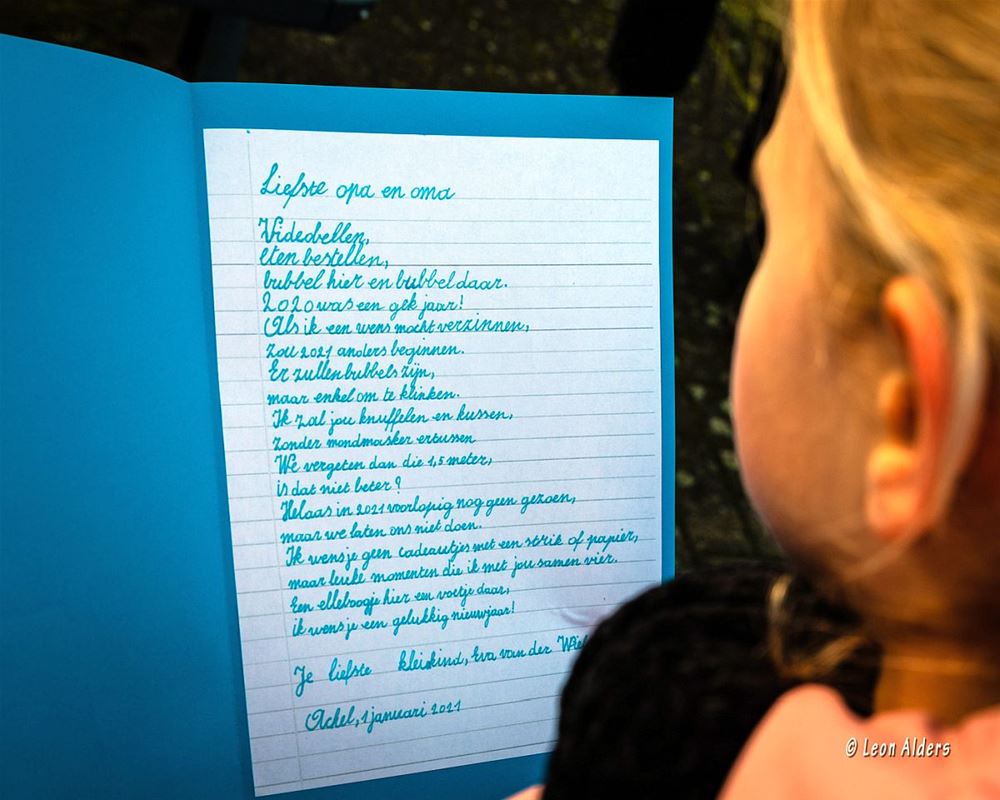 Liefste opa en oma
Videobellen,
eten bestellen,
bubbel hier en bubbel daar.
2020 was een gek jaar!
Als ik een wens mocht verzinnen,
zou 2021 anders beginnen.
Er zullen bubbels zijn,
maar enkel om te klinken.
Ik zal jou knuffelen en kussen,
zonder mondmasker ertussen
We vergeten dan die 1,5 meter,
is dat niet beter?
Helaas in 2021 voorlopig nog geen gezoen,
maar we laten ons niet doen.
Ik wens je geen cadeautjes met een strik of papier,
maar leuke momenten die ik met jou samen vier.
Een elleboogje hier een voetje daar,
ik wens je een gelukkig nieuwjaar!
Je liefste kleinkind, Eva van der
Achel, 1 januari 2021
© Leon Alders